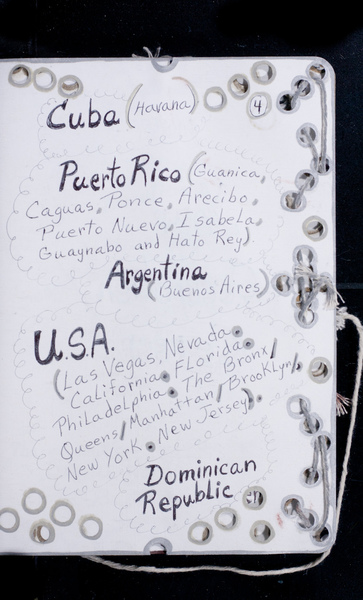 4
Cuba (Havana)
Puerto Rico (Guanica,
Caguas, Ponce, Arecibo,
Puerto Nuevo, Isabela,
Guaynabo and Hato Rey).
Argentina
(Buenos Aires)
U.S.A.
(Las Vegas, Nevada.
California. Florida.
Philadelphia. The Bronx/
Queens/Manhattan/Brooklyn/,
New York. New Jersey).
Dominican
Republic